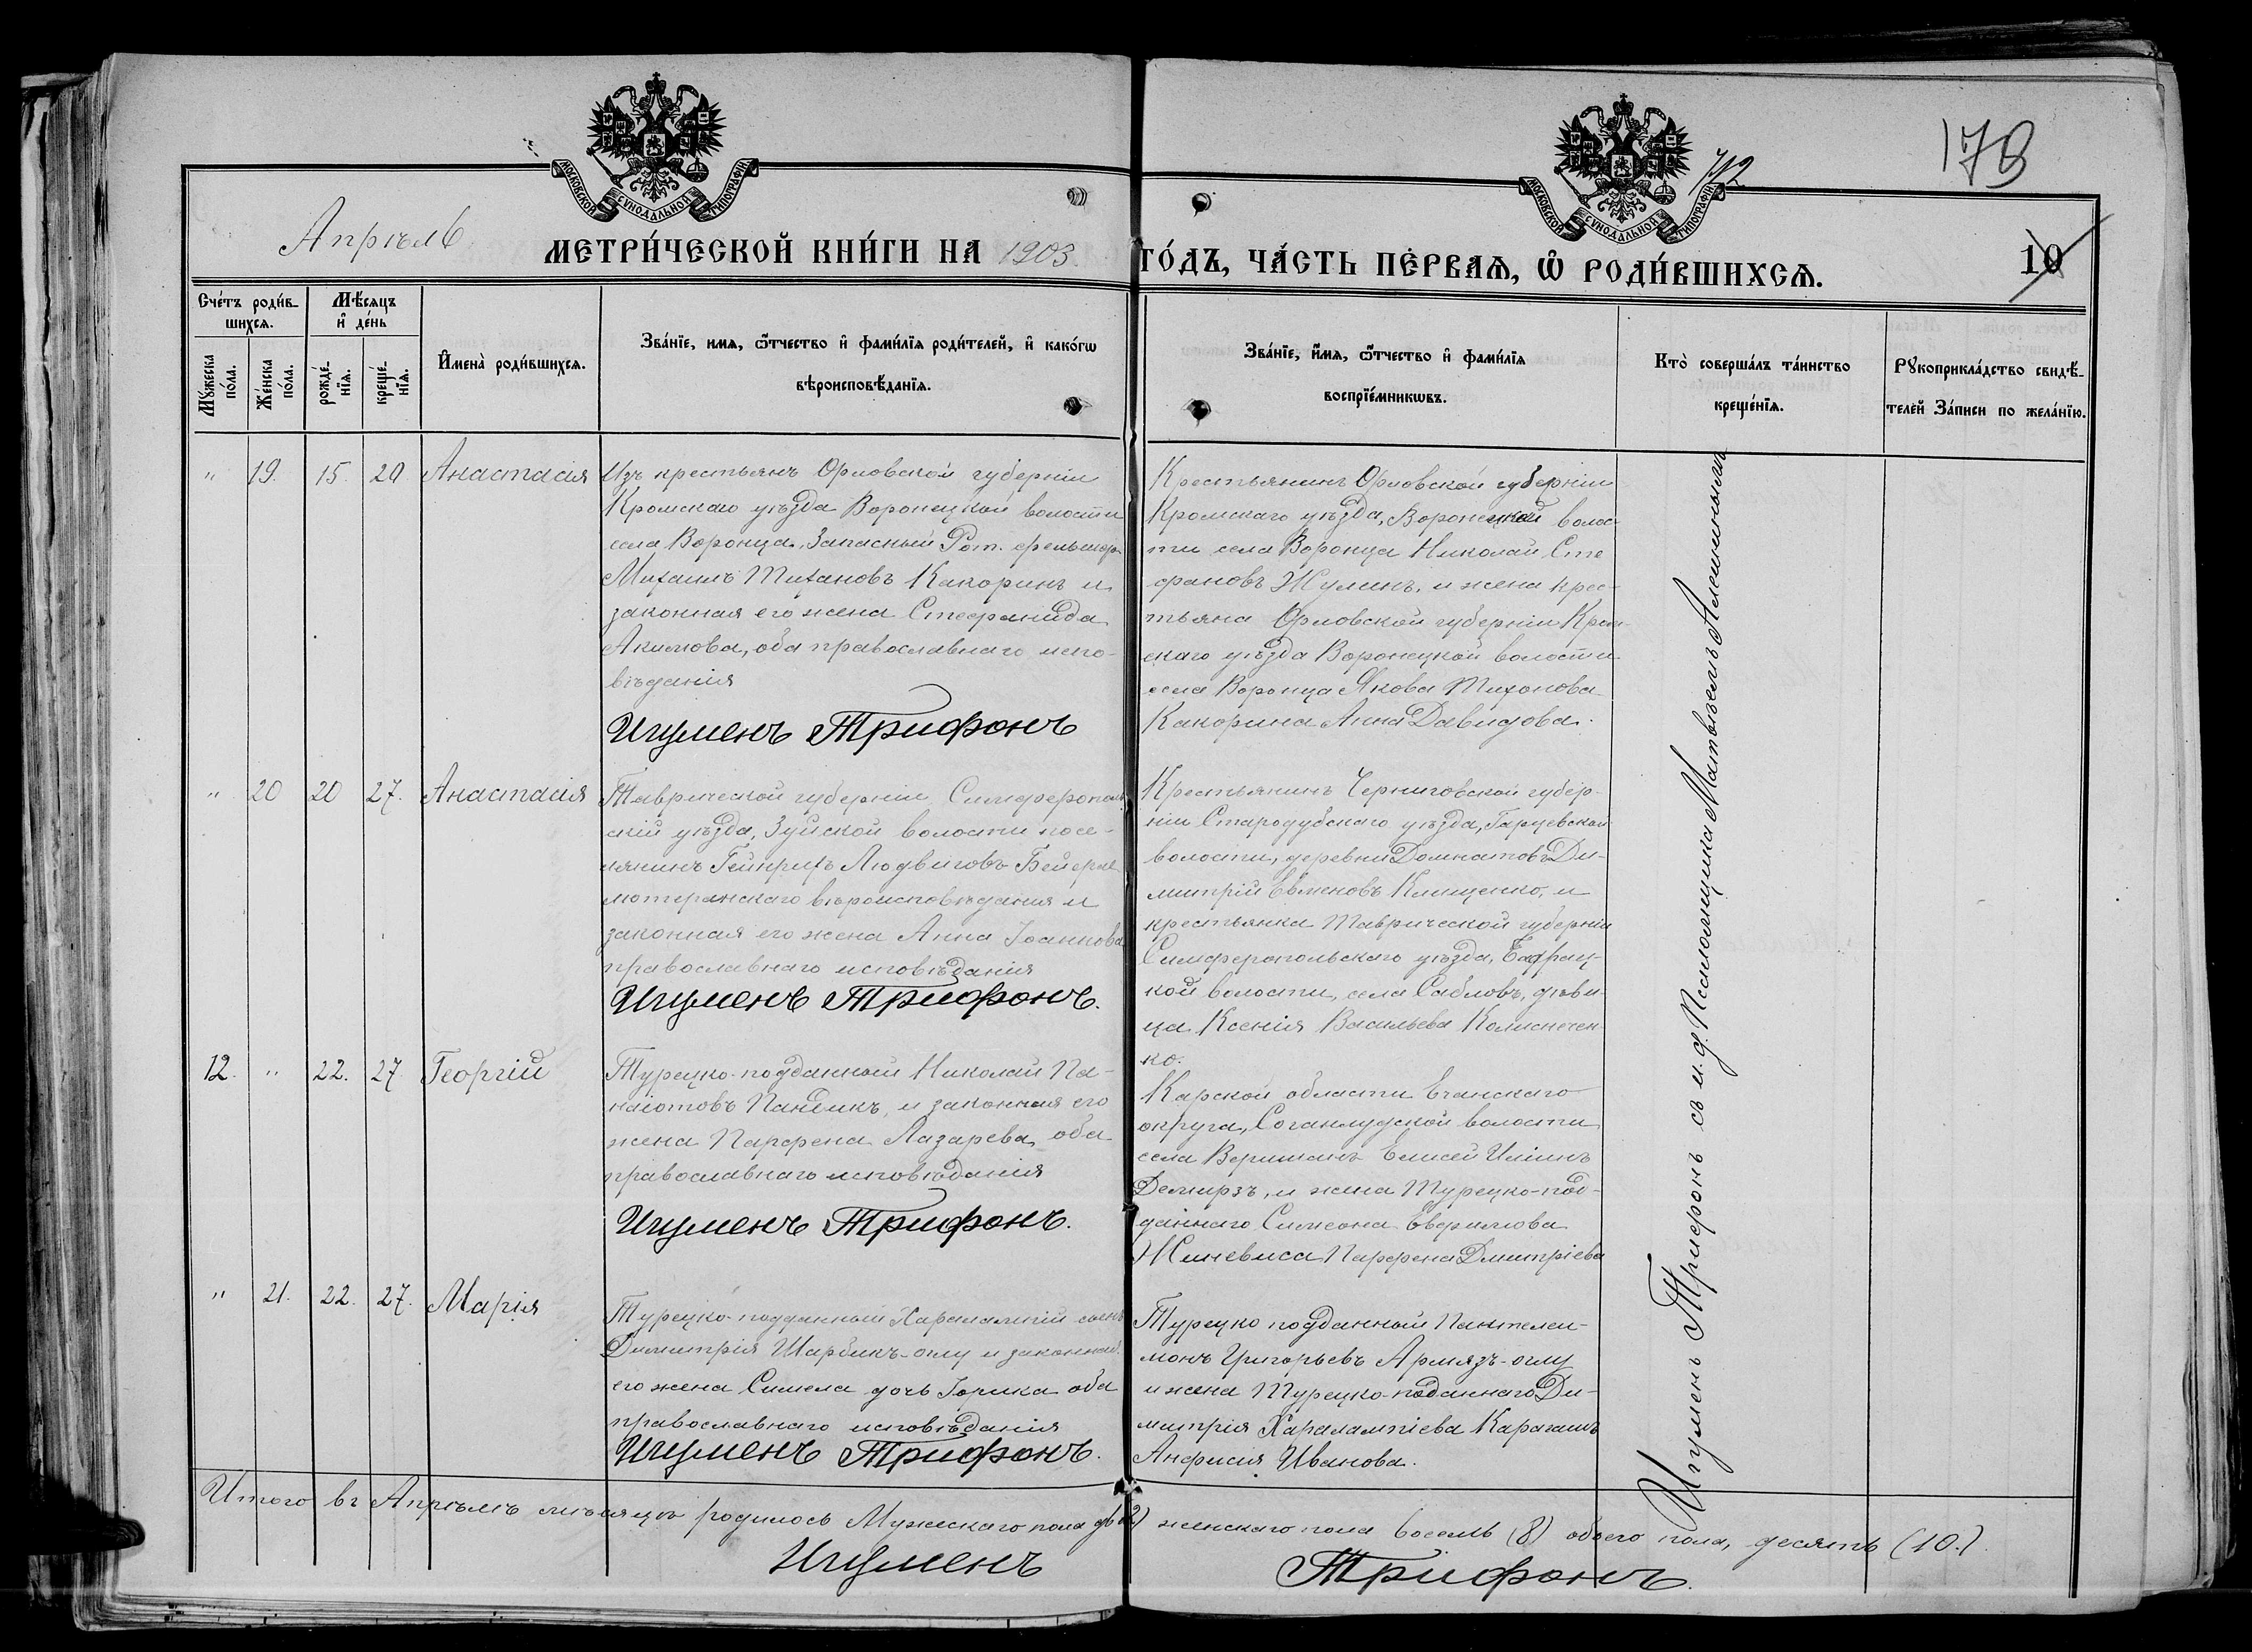 МОСКОВСКОЙ СѴНОДАЛЬНОЙ ТИПОГРАФІИ
МОСКОВСКОЙ СѴНОДАЛЬНОЙ ТИПОГРАФІИ
178
Апрѣль
МЕТРИ́ЧЕСКОЙ КНИ́ГИ НА 1903.
ГО́ДЪ, ЧА́СТЬ ПЕ́РВАѦ, Ѽ РОДИ́ВШИХСѦ.
10
Сче́тъ роди́в-
шихсѧ.
Мѣ́сѧцъ
и҆ де́нь
Мꙋ́жеска
по́ла.
Же́нска
по́ла.
рожде́-
нїѧ.
креще́-
нїѧ.
И҆мена̀ роди́вшихсѧ.
Зва́нїе, имѧ, ѻ҆́тчество и҆ фами́лїѧ роди́телей, и҆ како́гѡ
вѣроисповѣ́данїѧ.
Зва́нїе, и҆́мѧ, ѻ҆́тчество и҆ фами́лїѧ
воспрїе́мникѡвъ.
Кто̀ соверша́лъ та́инство
креще́нїѧ.
Рꙋкоприкла́дство свидѣ́-
телей За́писи по жела́нїю.
" 19. 15. 20 Анастасія
Изъ крестьянъ Орловской губерніи
Кромскаго уѣзда Воронецкой волости
села Воронца, Запасный Рот. фельдшеръ
Михаилъ Тихановъ Какоринъ и
законная его жена Стефанида
Акимова, оба православнаго испо-
вѣданія
Игуменъ Трифонъ
Крестьянинъ Орловской губерніи
Кромскаго уѣзда, Воронецкой волос-
ти села Воронца Николай Сте
фановъ Жулинъ, и жена крес-
тьяна Орловской губерніи Кром-
скаго уѣзда Воронецкой волости
села Воронца Якова Тихонова
Какорина Анна Давидова.
" 20 20 27. Анастасія
Таврической губерніи Симферополь
скій уѣзда, Зуйской волости посе-
лянинъ Гейнрихъ Людвиговъ Бейерле
лютеранскаго вѣроисповѣданія и
законная его жена Анна Іоаннова
православнаго исповѣданія
Игуменъ Трифонъ.
Крестьянинъ Черниговской губер-
ніи Стародубскаго уѣзда,
волости, деревни Ди-
митрій Евменовъ Клищенко, и
крестьянка Таврической губерніи
Симферопольскаго уѣзда,
кой волости, села Сабловъ, дѣви-
ца Ксенія Васильева Колиснечен-
ко.
12. " 22. 27 Георгій
Турецко-подданный Николай Па-
наіотовъ и законная его
жена Парфена Лазарева, оба
православнаго исповѣданія
Игуменъ Трифонъ.
Карской области
округа, Соганлугской волости
села Веришанъ Елисей Иліинъ
Демирзъ, и жена Турецко-под-
даннаго Симеона Евфимова
Жиневиса Парфена Дмитріева
" 21. 22. 27. Марія
Турецко-подданный Харалампій сынъ
Димитрія и законная
его жена Симела дочь Іорика оба
православнаго исповѣданія
Игуменъ Трифонъ.
Турецко подданный Пантелеи-
монъ Григорьевъ Армязъ-оглу
и жена Турецко-подданнаго Ди-
митрія Харалампіева Карагашъ
Анфисия Иванова.
Игуменъ Трифонъ съ и. д. Псаломщика Матвѣемъ
Итого въ Апрѣлѣ мѣсяцѣ родилось Мужескаго пола два (2) женскаго пола восемь (8) обоего пола, десять (10.)
Игуменъ Трифонъ.